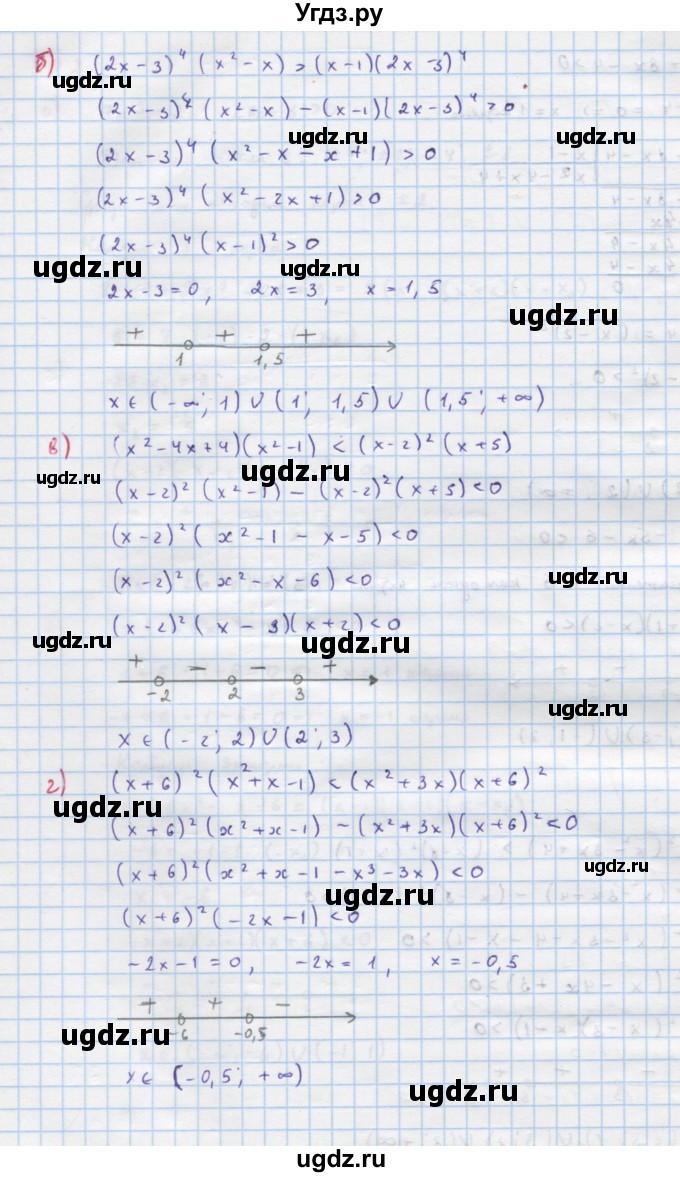 Угдз.ру
б) (2x-3)⁴ (x²-x) > (x-1)(2x-3)⁴
ugdz.ru
(2x-3)⁴ (x²-x) - (x-1)(2x-3)⁴ > 0
ugdz.ru
(2x-3)⁴ (x²-x-x+1) > 0
ugdz.ru
(2x-3)⁴ (x²-2x+1) > 0
(2x-3)⁴ (x-1)² > 0
ugdz.ru ugdz.ru
2x-3=0, 2x=3, x=1,5
ugdz.ru
+ + +
1 1,5
x ∈ (-∞; 1) ∪ (1; 1,5) ∪ (1,5; +∞)
в) (x²-4x+4)(x²-1) < (x-2)² (x+5)
ugdz.ru ugdz.ru ugdz.ru
(x-2)² (x²-1) - (x-2)² (x+5) < 0
(x-2)² (x²-1-x-5) < 0
(x-2)² (x²-x-6) < 0
ugdz.ru
(x-2)² (x-3)(x+2) < 0
ugdz.ru ugdz.ru
+ - - +
-2 2 3
ugdz.ru
x ∈ (-2; 2) ∪ (2; 3)
г) (x+6)² (x²+x-1) < (x²+3x)(x+6)²
ugdz.ru ugdz.ru
(x+6)² (x²+x-1) - (x²+3x)(x+6)² < 0
(x+6)² (x²+x-1-x³-3x) < 0
ugdz.ru
ugdz.ru
(x+6)² (-2x-1) < 0
-2x-1=0, -2x=1, x=-0,5
+ + -
-6 -0,5
ugdz.ru ugdz.ru
x ∈ (-0,5; +∞)
ugdz.ru
ugdz.ru